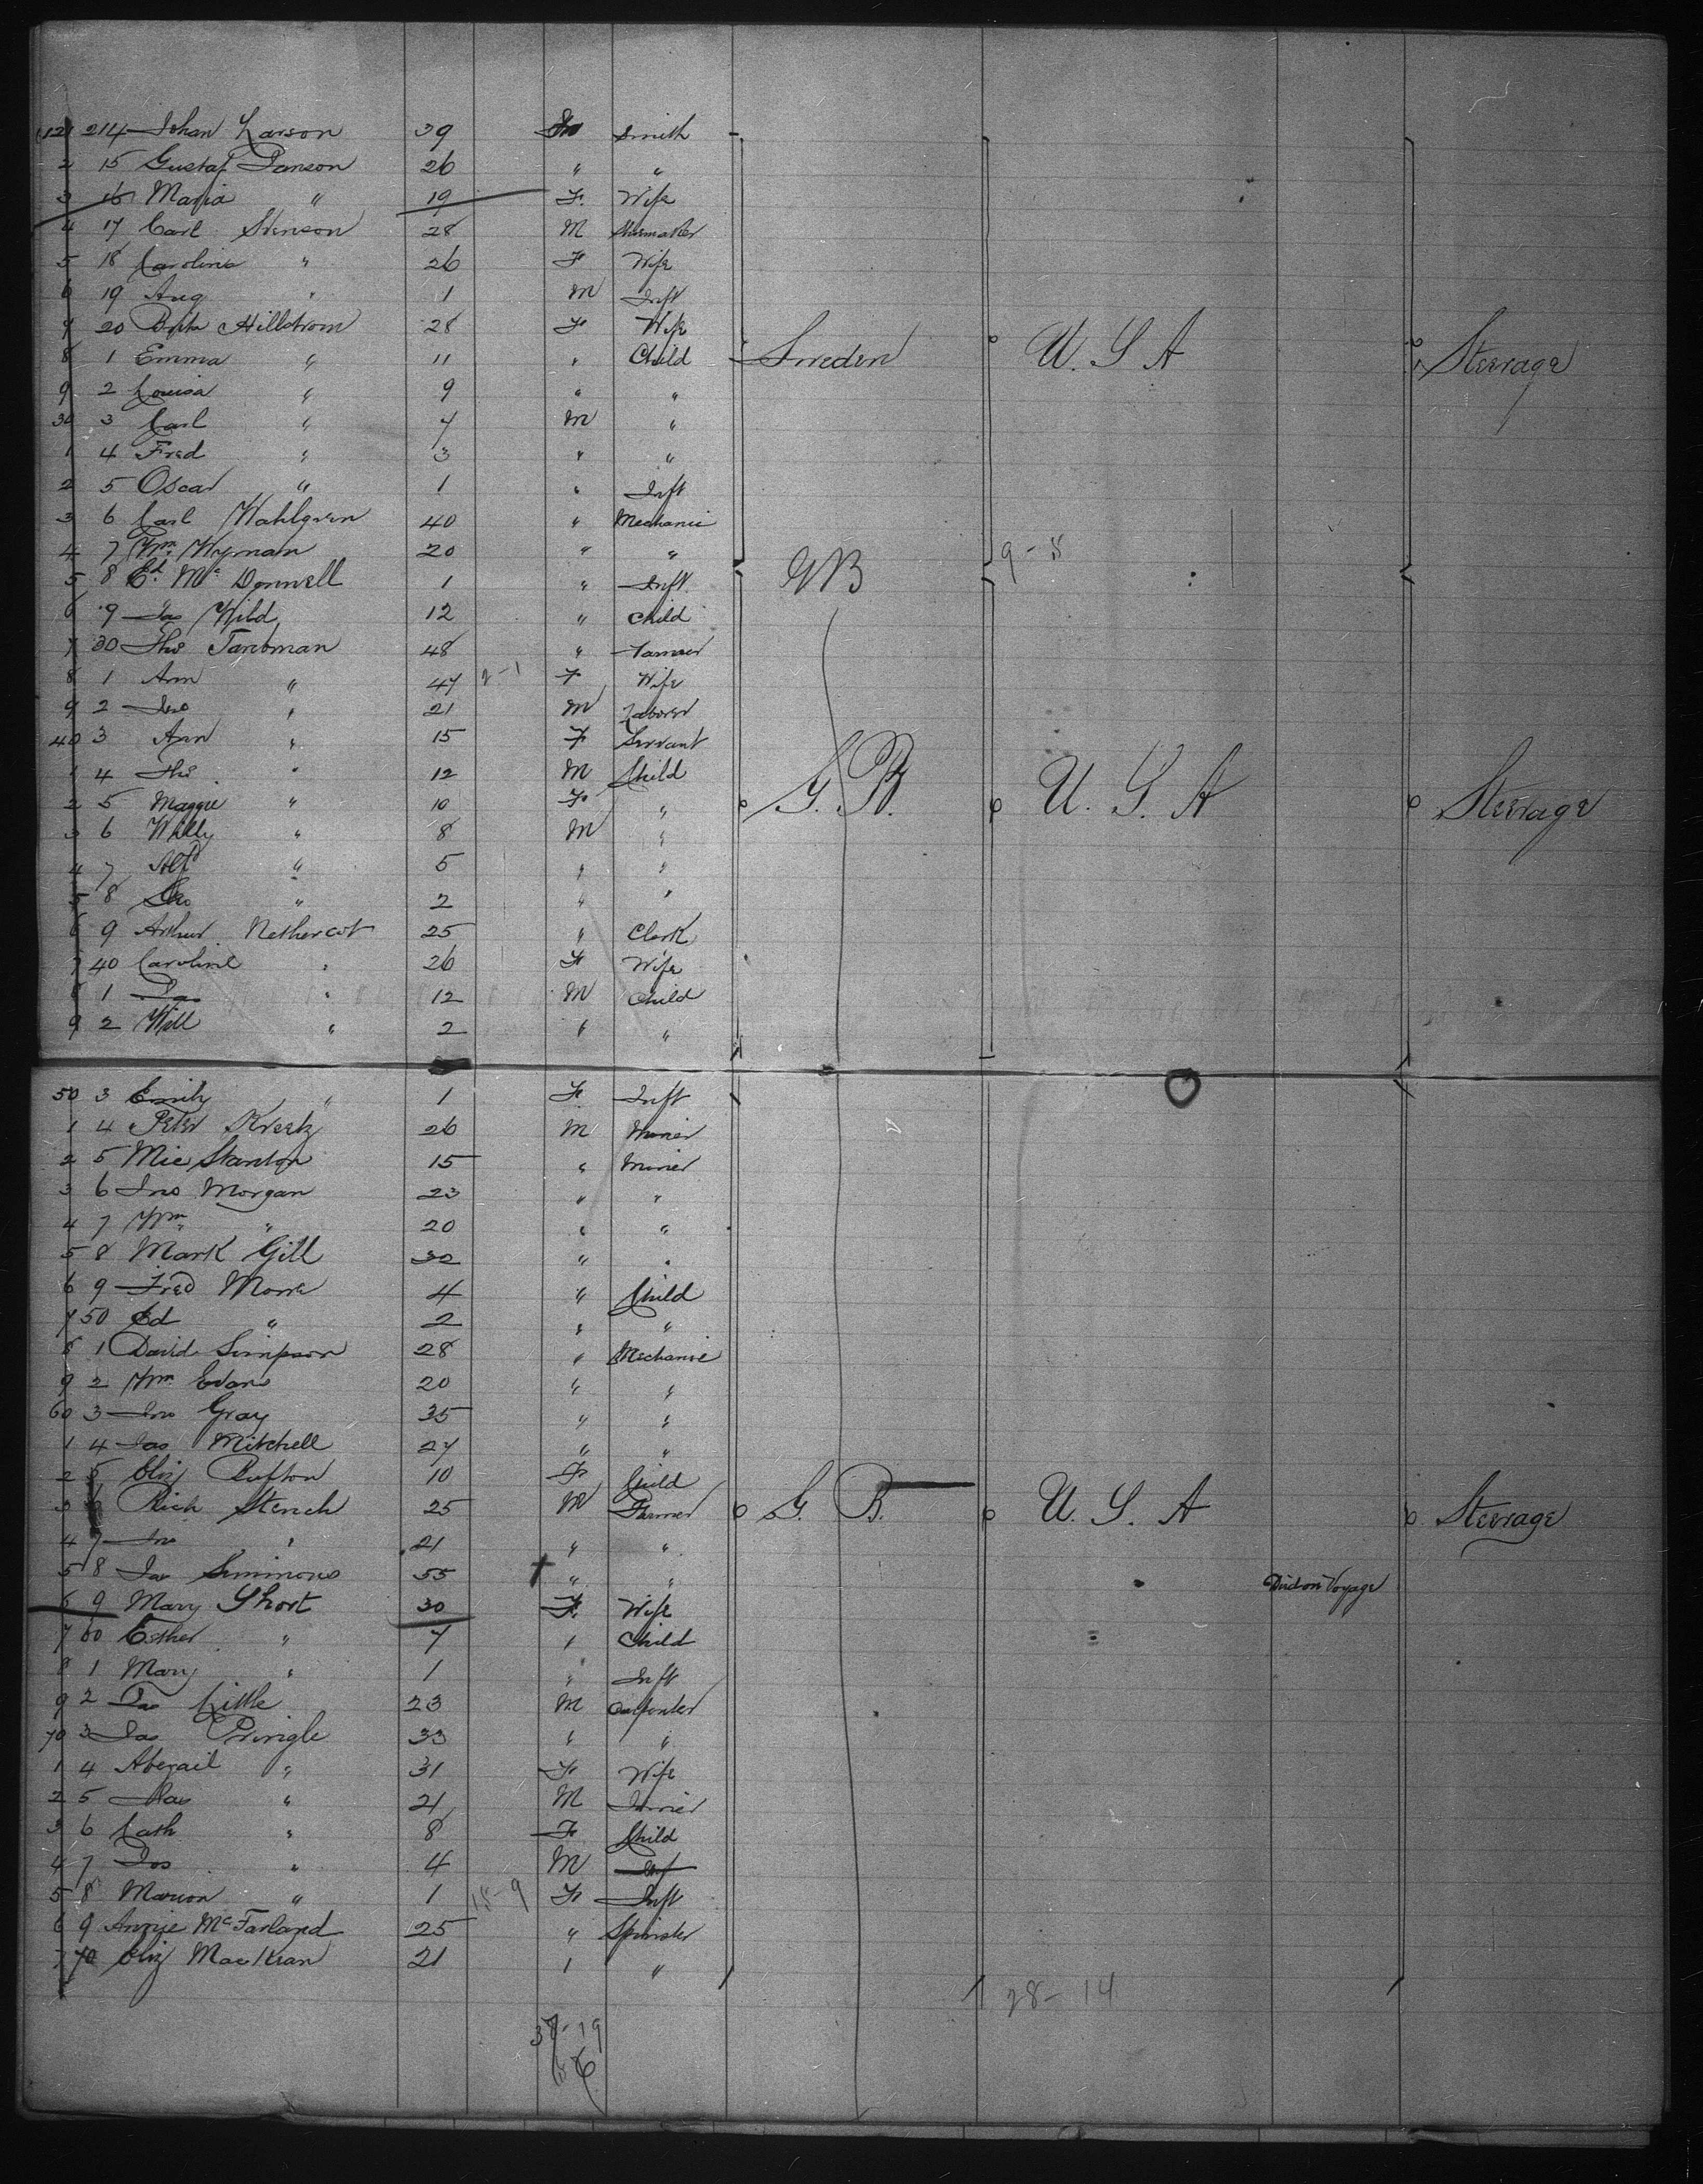 121 214 Johan Larson 39 M Smith
2 15 Gustaf Janson 26 " "
3 16 Maria " 19 F. Wife
4 17 Carl Svenson 28 M Shoemaker
5 18 Carolina " 26 F Wife
6 19 Aug " 1 M Inft
7 20 Hillstrom 28 F Wife
8 1 Emma " 11 " Child Sweden U. S. A Steerage
9 2 Louisa " 9 " "
30 3 Carl " 7 M "
1 4 Fred " 3 " "
2 5 Oscar " 1 " Inft
3 6 Carl Wahlgren 40 " Mechanic
4 7 Wm. Wyman 20 " " 9-5
5 8 Ed. Mc Donnell 1 " Inft. GB
6 9 Jas Wild 12 " Child
7 30 Thos 48 "
8 1 Ann " 47 2-1 F Wife
9 2 Jno " 21 M Laborer
40 3 Ann " 15 F Servant
1 4 Thos " 12 M Child
2 5 Maggie " 10 F " G. B. U. S. A Steerage
3 6 Willy " 8 M "
4 7 Alfd " 5 " "
5 8 Geo " 2 " "
6 9 Arthur Nethercot 25 " Clerk
7 40 Caroline " 26 F Wife
8 1 Jas " 12 M Child
9 2 Will " 2 " "
50 3 Emily " 1 F Inft
1 4 Peter 26 M Miner
2 5 Mic Stanton 15 " Miner
3 6 Jno Morgan 23 " "
4 7 Wm " 20 " "
5 8 Mark Gill 32 " "
6 9 Fred 4 " Child
7 50 Ed " 2 " "
8 1 David Simpson 28 " Mechanic
9 2 Wm. Evans 20 " "
60 3 Jno Gray 35 " "
1 4 Jas Mitchell 27 " "
2 5 Eliz Bufton 10 F Child
3 6 Rich Stench 25 M Farmer G. B. U. S. A Steerage
4 7 Jno " 21 " "
5 8 Jas Simmons 55 " " Died on Voyage
6 9 Mary Short 30 F. Wife
7 60 Esther " 7 " Child
8 1 Mary " 1 " Inft
9 2 Jas Little 23 M Carpenter
70 3 Jas Pringle 33 " "
1 4 Abegail " 31 F Wife
2 5 " 21 M Joiner
3 6 Cath " 8 F Child
4 7 Jos " 4 M
5 8 Marion " 1 15-9 F Inft
6 9 Annie McFarland 25 " Spinster
7 70 Eliz MacKean 21 " "
28-14
37-19